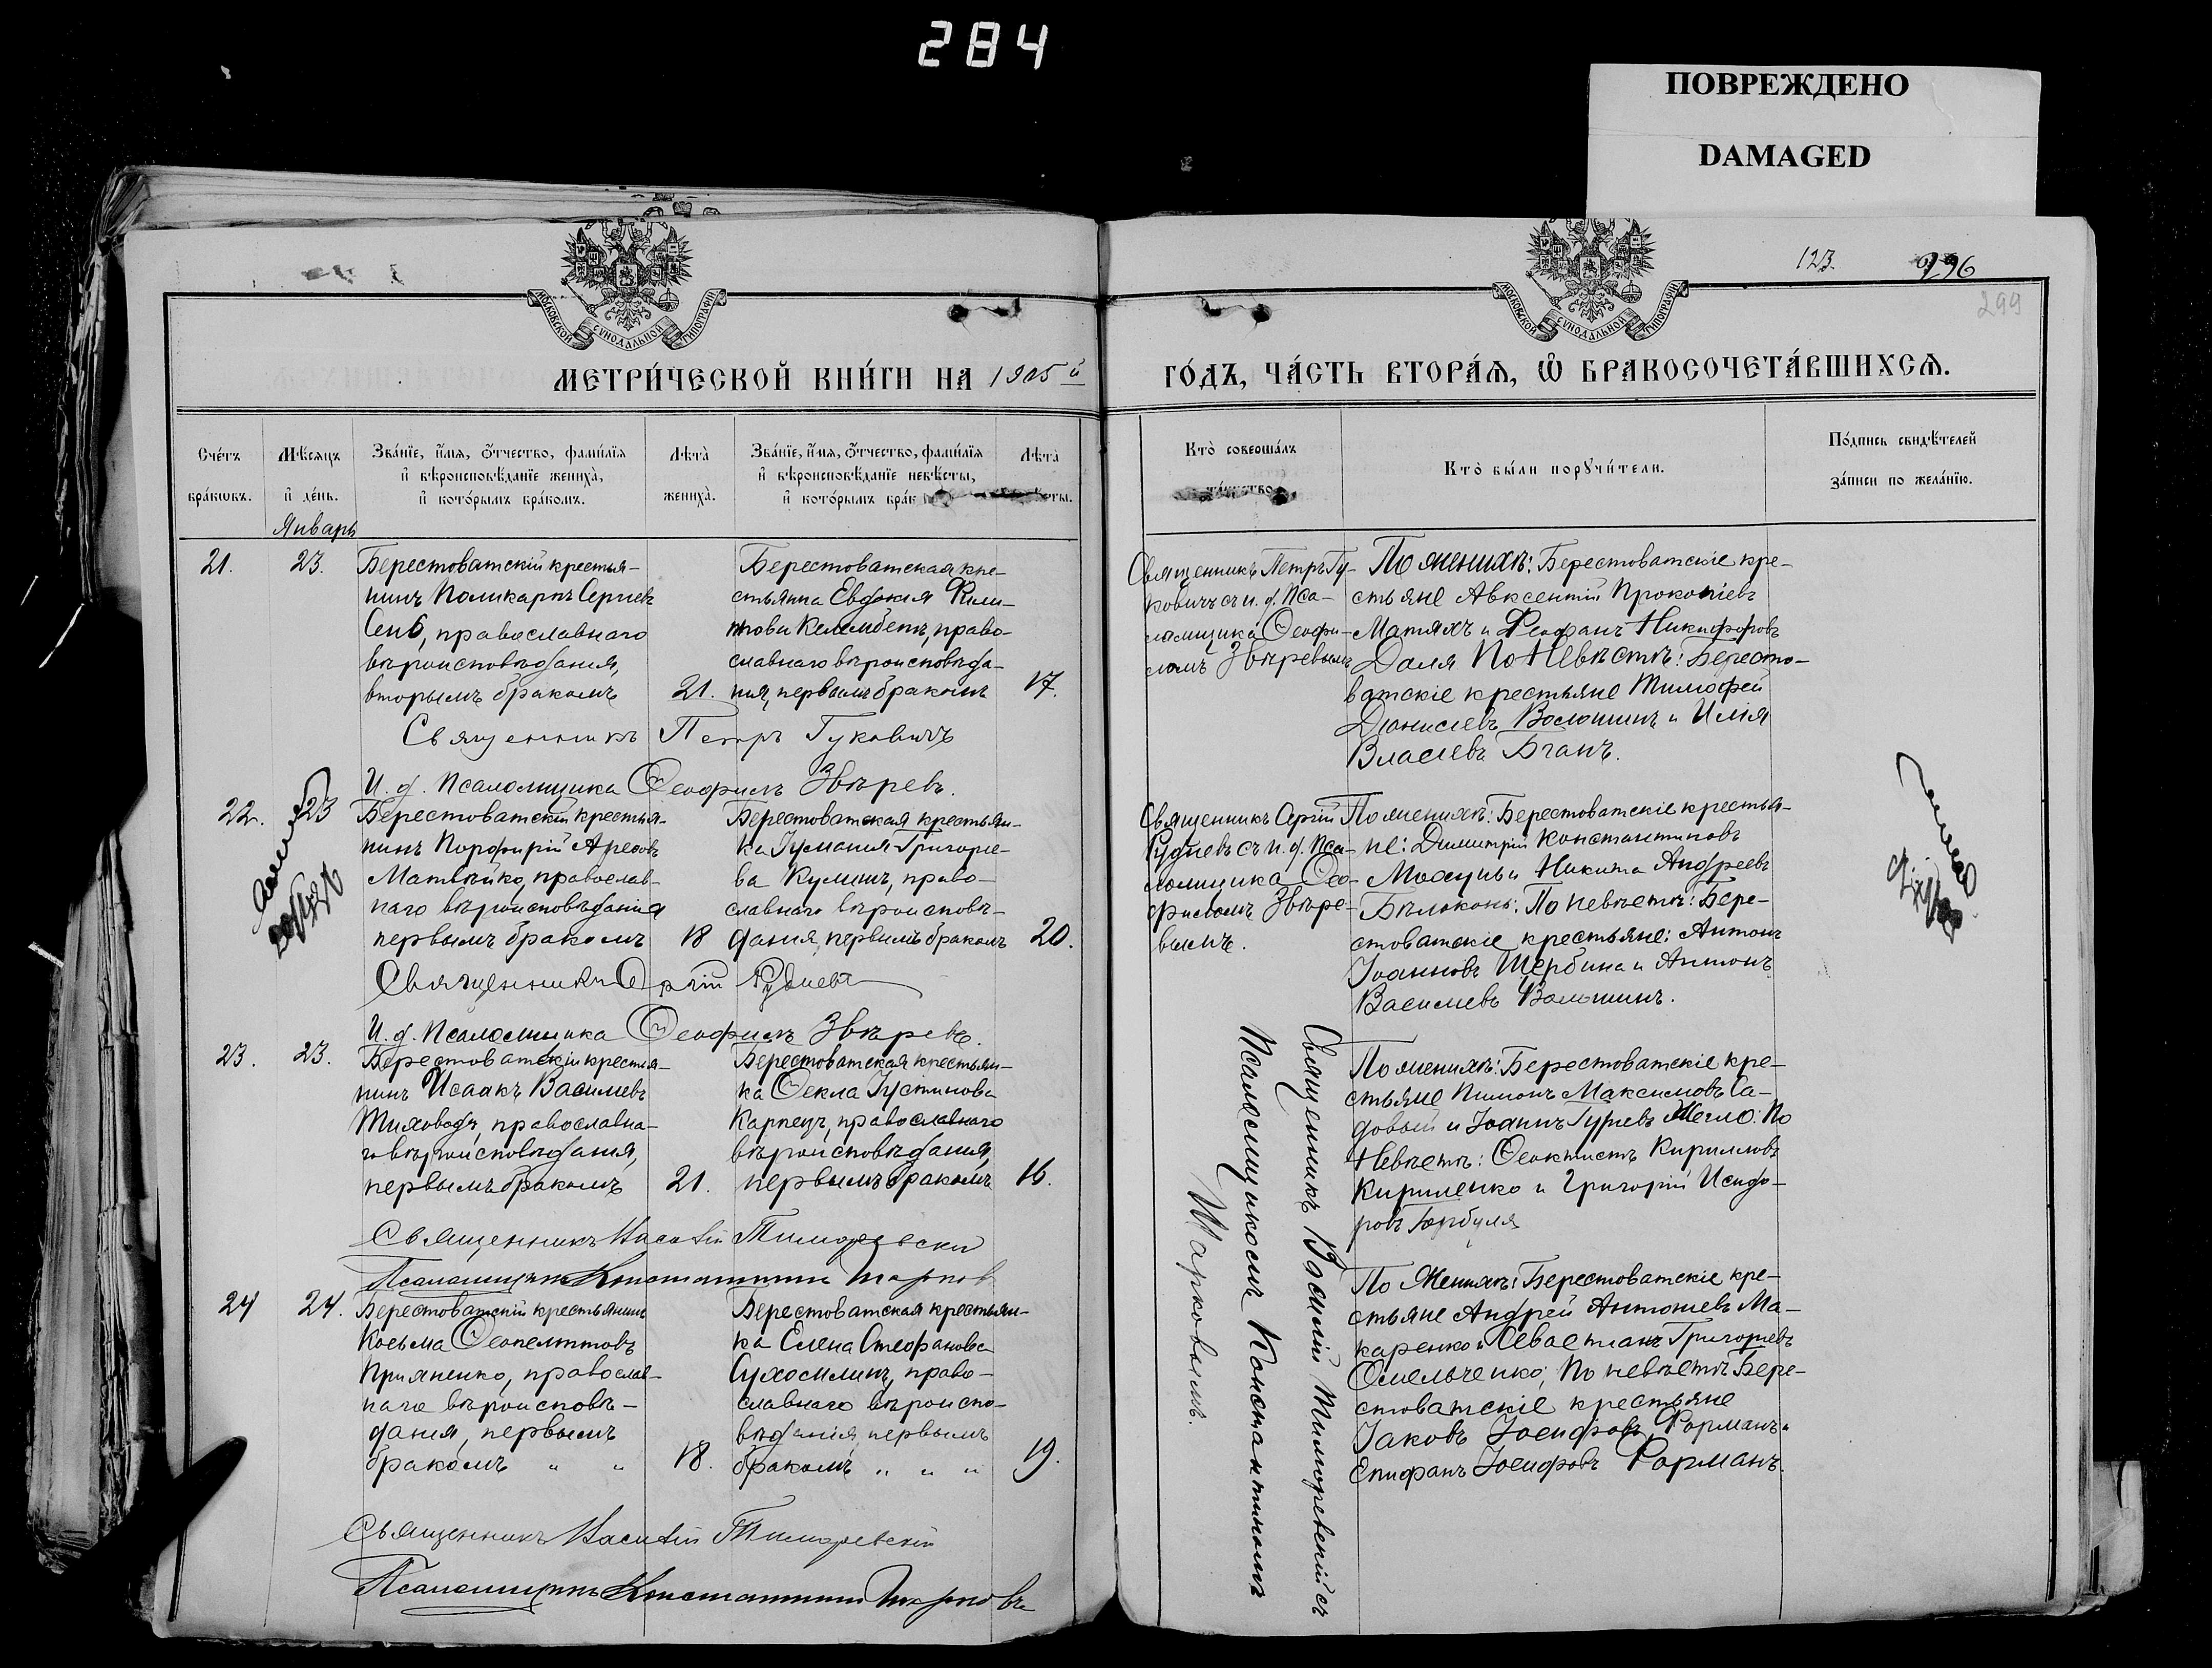 284
ПОВРЕЖДЕНО
DAMAGED
123.
296
299
МОСКОВСКОЙ СУНОДАЛЬНОЙ ТИПОГРАФІИ
МОСКОВСКОЙ СУНОДАЛЬНОЙ ТИПОГРАФІИ
МЕТРИ́ЧЕСКОЙ КНИ́ГИ НА 1905й
ГО́ДЪ, ЧА́СТЬ ВТОРА́Я, Ѽ БРАКОСОЧЕТА́ВШИХСЯ.
Сче́тъ
бра́кωвъ.
Мѣ́сяцъ
и҆ де́нь.
Зва́нїе, и҆́мя, о҆́тчество, фами́лїя
и҆ вѣроисповѣ́данїе жениха̀,
и҆ кото́рымъ бра́комъ.
Лѣта̀
жениха̀.
Зва́нїе, и҆́мя, о҆́тчество, фами́лїя
и҆ вѣроисповѣ́данїе невѣ́сты,
и҆ кото́рымъ брак
Лѣта̀
сты.
Кто̀ соверша́лъ
та́инство
Кто̀ бы́ли порꙋчи́тели.
По́дпись свидѣ́телей
за́писи по жела́нїю.
Январь
21.
23.
Берестоватскій крестья-
нинъ Поликарпъ Сергіевъ
православнаго
вѣроисповѣданія,
вторымъ бракомъ
21.
Берестоватская кре-
стьянка Евдокія Фили-
пова Келембетъ, право-
славнаго вѣроисповѣда-
нія, первымъ бракомъ
17.
Священникъ Петръ Гу-
ковичъ съ и. д. Пса-
ломщика Ѳеофи-
ломъ Звѣревымъ
По женихѣ: Берестоватскіе кре-
стьяне Авксентій Прокопіевъ
Матяхъ и Феофанъ Никифоровъ
Даля По Невѣстѣ: Бересто-
ватскіе крестьяне Тимофей
Діонисіевъ Волошинъ и Илія
Власіевъ Бганъ.
Священникъ Петръ Гуковичъ
И. д. Псаломщика Ѳеофилъ Звѣревъ.
22.
23
Берестоватскій крестья-
нинъ Порфирій Арефовъ
Матвѣйко, православ-
наго вѣроисповѣданія
первымъ бракомъ
18
Берестоватская крестьян-
ка Іуліанія Григоріе-
ва Кулишъ, право-
славнаго вѣроисповѣ-
данія, первымъ бракомъ
20.
Священникъ Сергій
Рудневъ съ и. д. Пса-
ломщика Ѳео-
филомъ Звѣре-
вымъ.
По женихѣ: Берестоватскіе крестья-
не: Димитрій Константиновъ
и Никита Андреевъ
Бѣлоконь: По невѣстѣ: Бере-
стоватскіе крестьяне: Антонъ
Іоанновъ Щербина и Антонъ
Василіевъ Волошинъ.
Священникъ Сергій Рудневъ
И. д. Псаломщика Ѳеофилъ Звѣревъ.
23.
23.
Берестоватскій крестья-
нинъ Исаакъ Василіевъ
Тиховодъ, православна-
го вѣроисповѣданія,
первымъ бракомъ
21.
Берестоватская крестьян-
ка Ѳекла Іустинова
Карпецъ, православнаго
вѣроисповѣданія,
первымъ бракомъ
16.
Священникъ Василій Тимофевскій съ
Псаломщикомъ Константиномъ
Шарковымъ.
По женихѣ: Берестоватскіе кре-
стьяне Пименъ Максимовъ Са-
довый и Іоаннъ Гуріевъ Жегло: По
Невѣстѣ: Ѳеоктистъ Кирилловъ
Кириленко и Григорій Исидо-
ровъ Горбуля
Священникъ Василій Тимофевскій
Псаломщикъ Константинъ Шарковъ
24
24.
Берестоватскій крестьянинъ
Косьма Ѳеопемптовъ
Прияненко, православ-
наго вѣроисповѣ-
данія, первымъ
бракомъ " "
18.
Берестоватская крестьян-
ка Елена Стефанова
Сухосилинъ, право-
славнаго вѣроиспо-
вѣданія первымъ
бракомъ " " "
19.
По Женихѣ: Берестоватскіе кре-
стьяне Андрей Антоніевъ Ма-
каренко и Севастіанъ Григоріевъ
Омельченко; По невѣстѣ Бере-
стоватскіе крестьяне
Іаковъ Іосифовъ Форманъ и
Епифанъ Іосифовъ Форманъ.
Священникъ Василій Тимофевскій
Псаломщикъ Константинъ Шарковъ